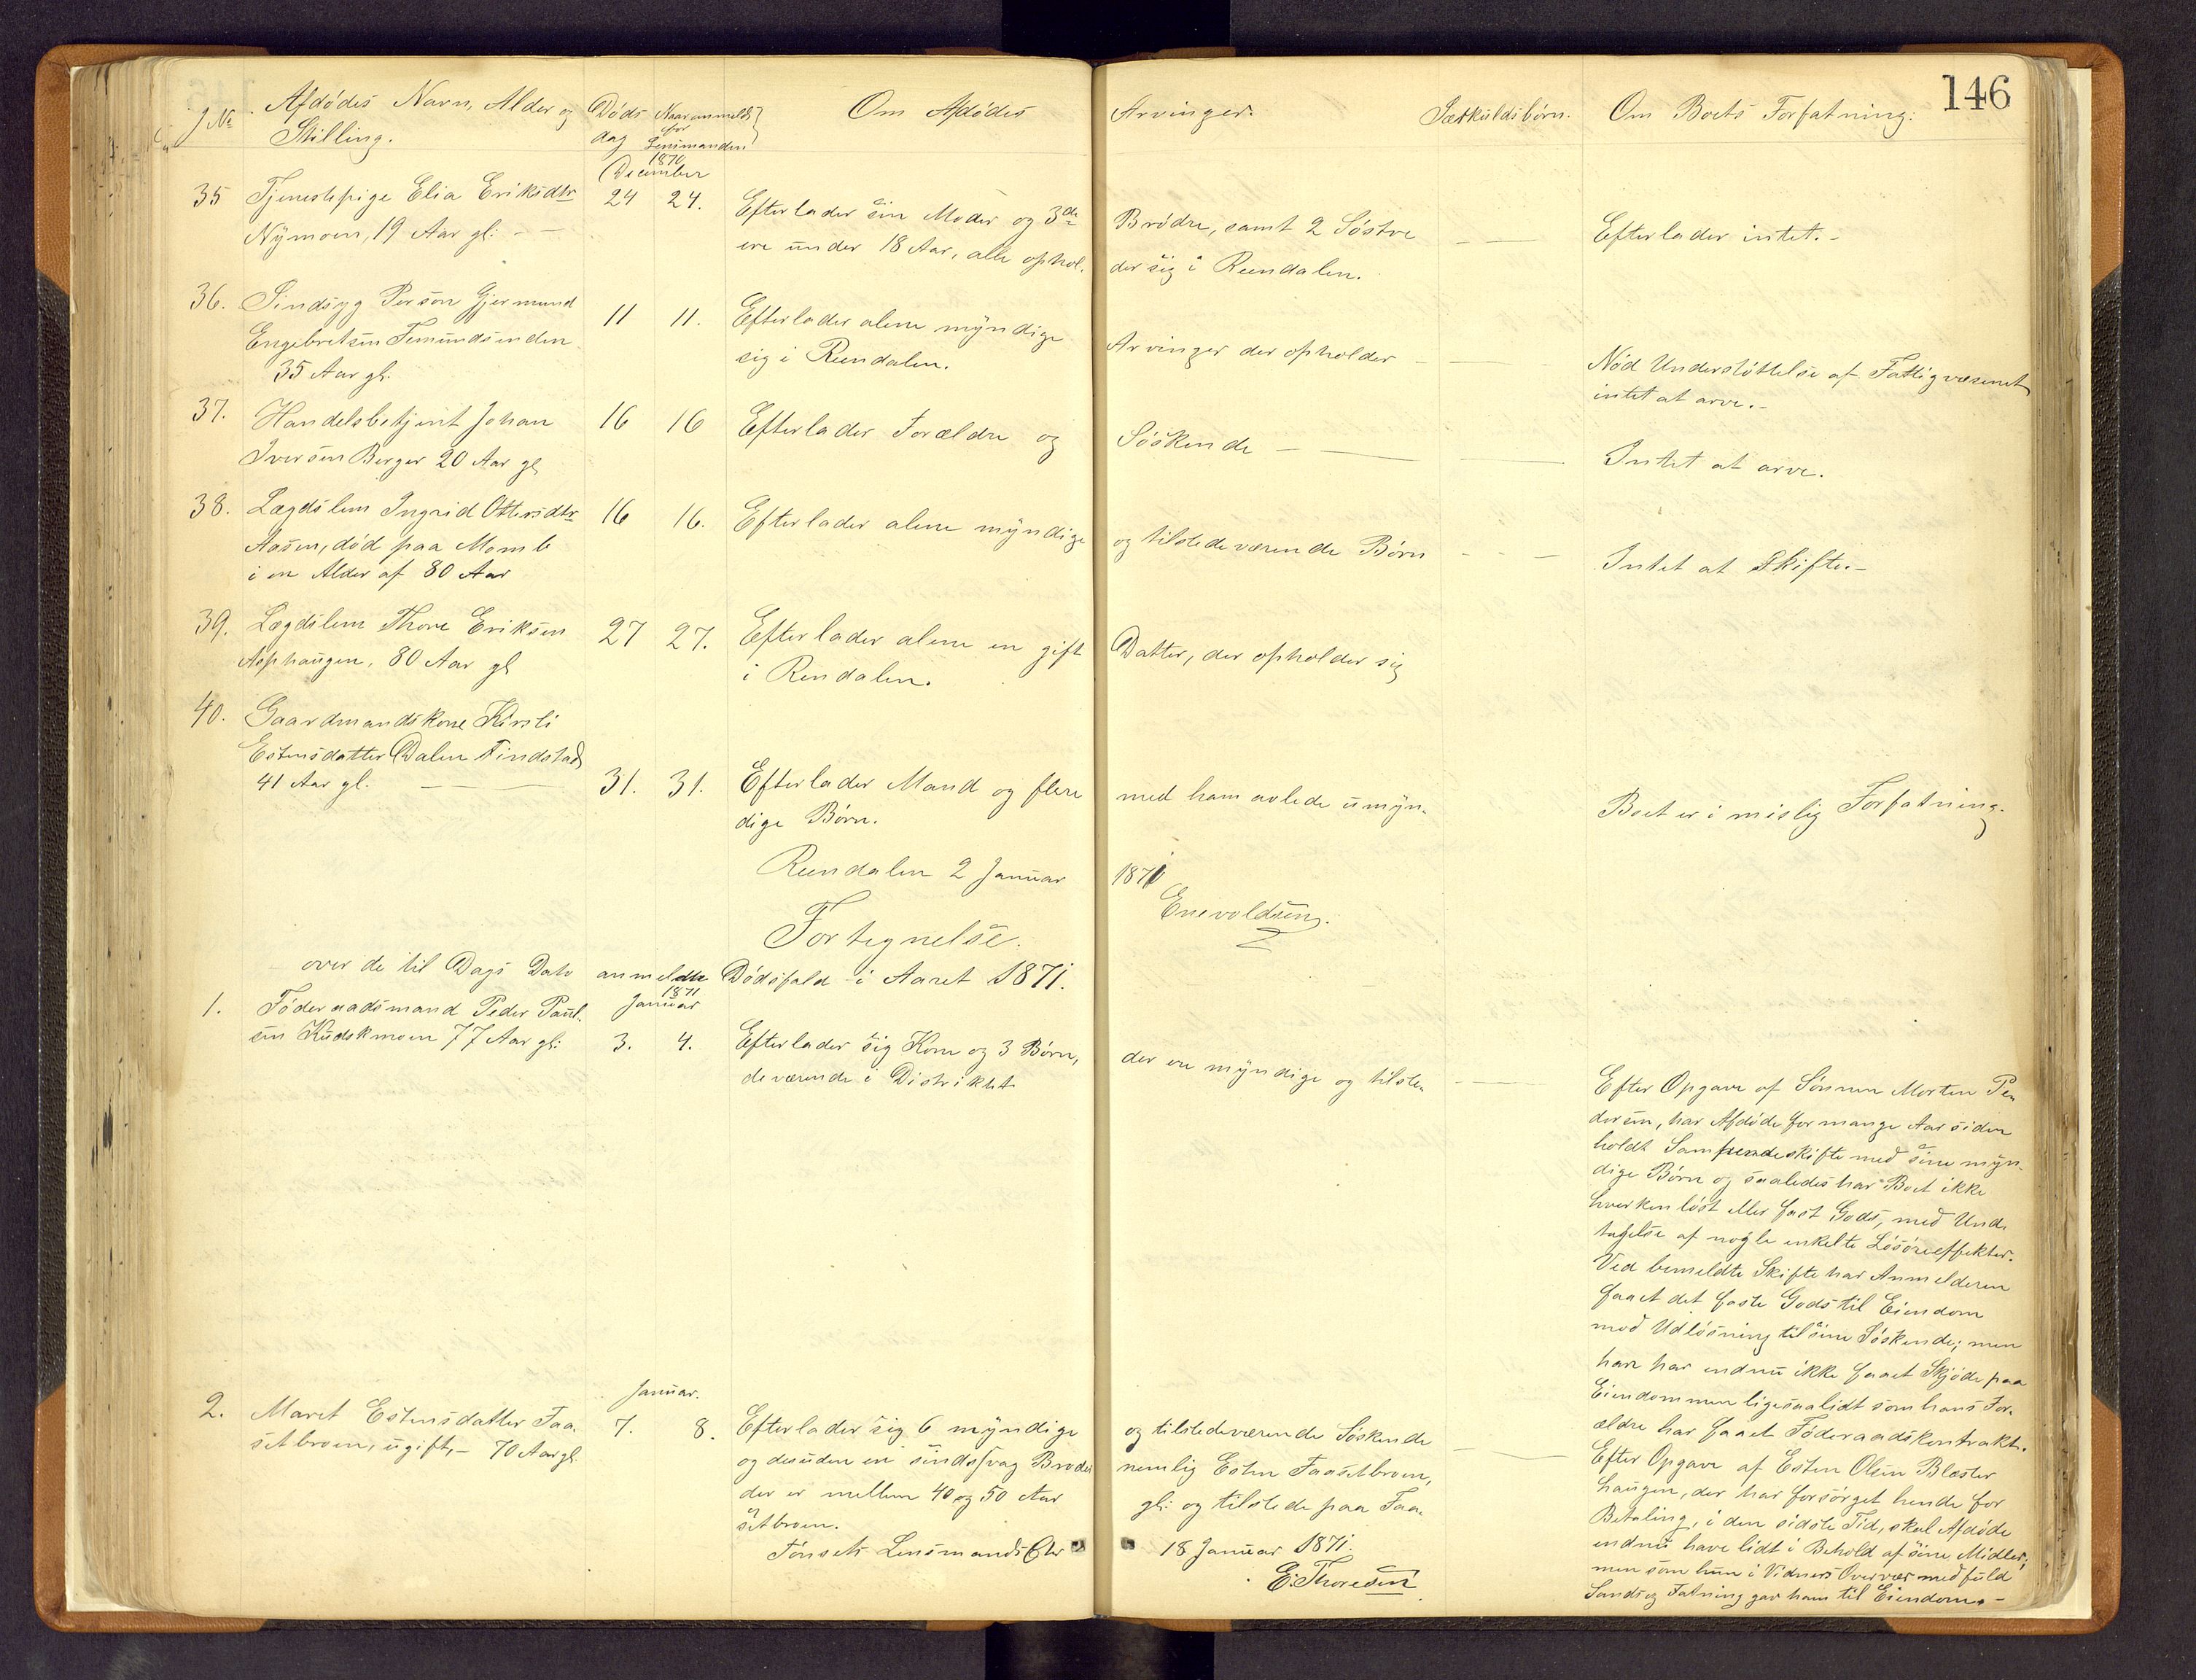 146
J No Afdødes Navn, Alder og Stilling.
Døds dag
Naar anmeldt for Lensmanden
Om Afdødes Arvinger.
Særkuldsbørn.
Om Boets Forfatning.
1870
December
35 Tjenestepige Elia Eriksdtr
Nÿmoen, 19 Aar gl: - -
24 24.
Efterlader sin Moder og 3de Brødre, samt 2 Søstre
ere under 18 Aar, alle ophol- der sig i Rendalen.
Efterlader intet.-
36. Sindsyg Person Gjermund
Engebretsen Femundsenden
35 Aar gl.
11 11.
Efterlader alene mÿndige Arvinger der opholder
sig i Rendalen.
Nød Understøttelse af Fattigvæsenet
intet at arve.-
37. Handelsbetjent Johan
Iversen Berger 20 Aar gl
16 16
Efterlader Forældre og Søskende
Intet at arve.
38. Lægdslem Ingrid Ottersdtr
Aasen, død paa Momb
i en Alder af 80 Aar
16 16.
Efterlader alene mÿndige og tilstedeværende Børn
Intet at Skifte.-
39. Lægdslem Thore Eriksen
Asphaugen, 80 Aar gl
27 27.
Efterlader alene en gift Datter, der opholder sig
i Rendalen.
40. Gaardmandskone Kirsti
Estensdatter Dalen Findstad
41 Aar gl.
31. 31.
Efterlader Mand og flere med ham avlede umÿn-
dige Børn.
Boet er i mislig Forfatning.
Rendalen 2 Januar 1871
Enevoldsen.
Fortegnelse.
over de til Dags Dato anmeldte Dødsfald i Aaret 1871.
1871
Januar
1. Føderaadsmand Peder Paul-
sen Kuds­kmoen 77 Aar gl:
3. 4.
Efterlader sig Kone og 3 Børn, der ere mÿndige og tilste-
deværende i Distriktet.
Efter Opgave af Sønnen Morten Pe-
dersen, har Afdøde for mange Aar siden
holdt Samfrendeskifte med sine mÿn-
dige Børn og saaledes har Boet ikke
hverken løst eller fast Gods, med Und-
tagelse af nogle enkelte Løsøreeffekter.
Ved bemeldte Skifte har Anmelderen
faaet det faste Gods til Eiendom
mod Udløsning til sine Søskende; men
han har endnu ikke faaet Skjøde paa
Eiendommen ligesaalidt som hans For-
ældre har faaet Føderaadskontrakt.
Januar.
2. Maret Estensdatter Faa-
setbroen, ugift, - 70 Aar gl
7. 8.
Efterlader sig 6 mÿndige og tilstedeværende Søskende
og desuden en sindssvag Broder nemlig Esten Faasetbroen,
der er mellem 40 og 50 Aar gl: og tilstede paa Faa-
setbroen.
Efter Opgave af Esten Olsen Blæster
haugen, der har forsørget hende for
Betaling, i den sidste Tid, skal Afdøde
endnu have lidt i Behold af sine Midler;
men som hun i Vidners Overvær med fuld
Sands og Fatning gav ham til Eiendom.-
Tønsets Lensmands 18 Januar 1871.
E. Thoresen